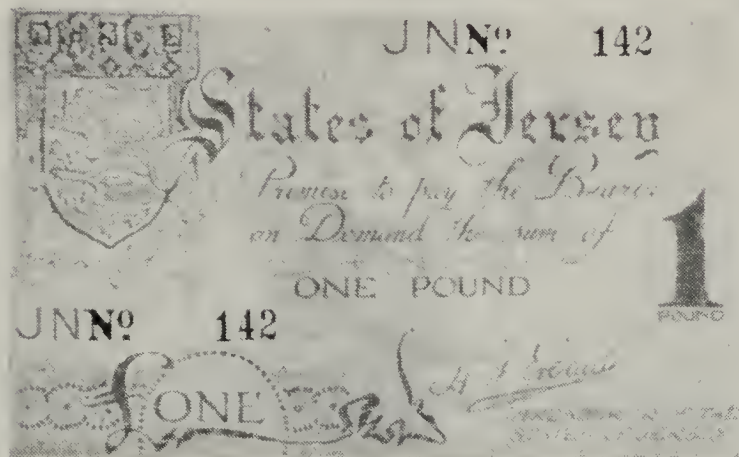 JN Nº 142
States of Jersey
Promise to pay the Bearer
on Demand the sum of
ONE POUND
1
POUND
JN Nº 142
£ ONE